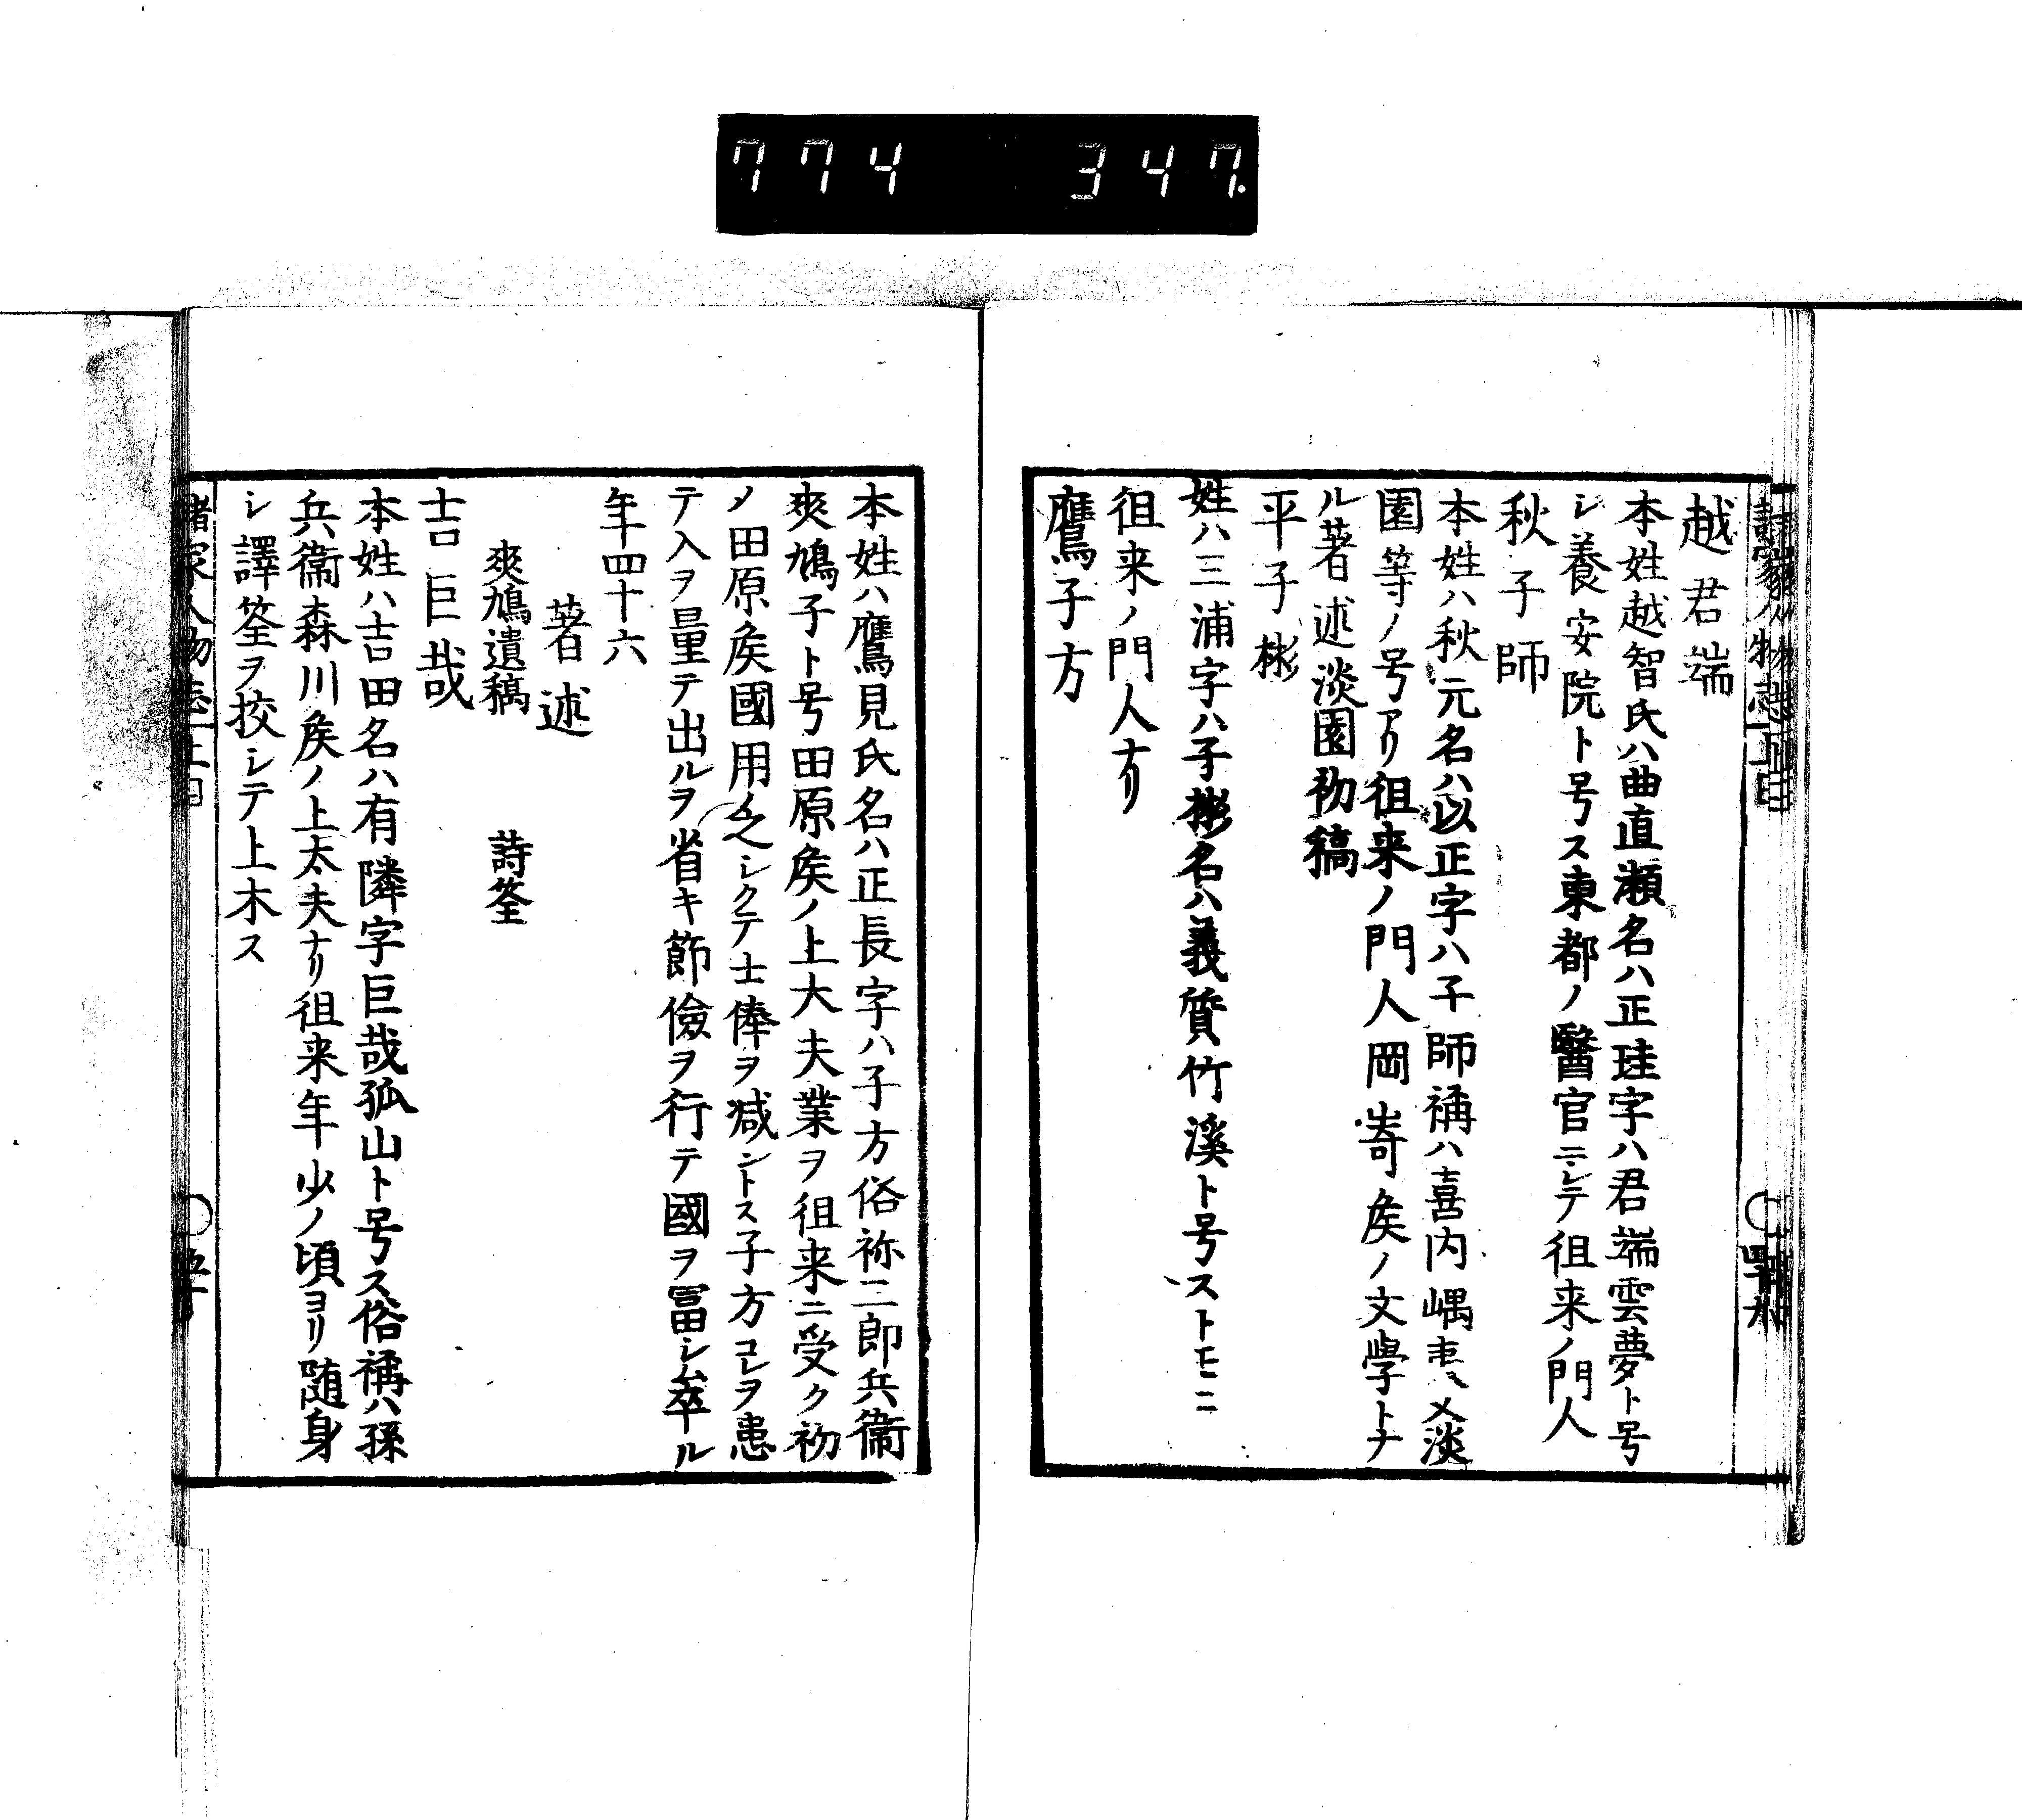 774 347.
越君端
本姓越智氏ハ曲直瀬名ハ正珪字ハ君端雲夢ト号
シ養安院ト号ス東都ノ醫官ニシテ徂来ノ門人
秋子師
本姓ハ秋元名ハ以正字ハ子師稱ハ喜内嵎夷又淡
園等ノ号アリ徂来ノ門人岡﨑矦ノ文學トナ
ル著述淡園初稿
平子彬
姓ハ三浦字ハ子彬名ハ義質竹溪ト号ストモニ
徂来ノ門人ナリ
鷹子方
本姓ハ鷹見氏名ハ正長字ハ子方俗称三郎兵衞
爽鳩子ト号田原矦ノ上大夫業ヲ徂来ニ受ク初
ノ田原矦國用乏シクテ士俸ヲ减シトス子方コレヲ患
テ入ヲ量テ出ルヲ省キ節儉ヲ行テ國ヲ冨シム卒ル
年四十六
著述
爽鳩遺稿 詩筌
吉巨哉
本姓ハ吉田名ハ有隣字巨哉孤山ト号ス俗稱ハ孫
兵衞森川矦ノ上太夫ナリ徂来年少ノ頃ヨリ随身
シ譯筌ヲ挍シテ上木ス
諸家人物志